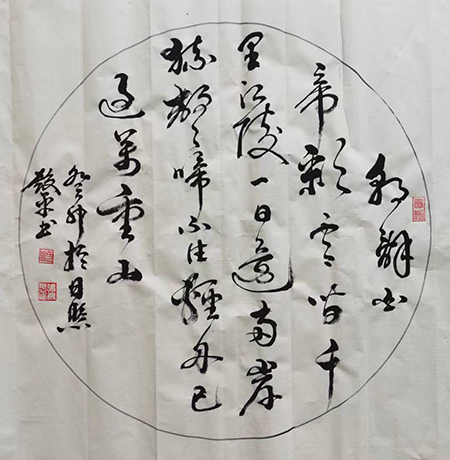 朝辭白
帝彩雲間千
里江陵一日還兩岸
猿聲啼不住輕舟已
過萬重山
癸卯於日照
平书